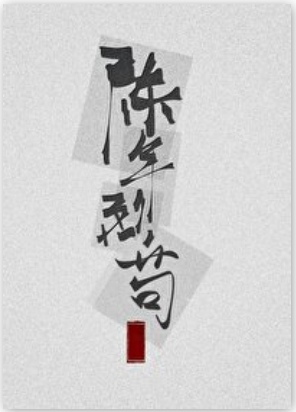 陈年烈苟